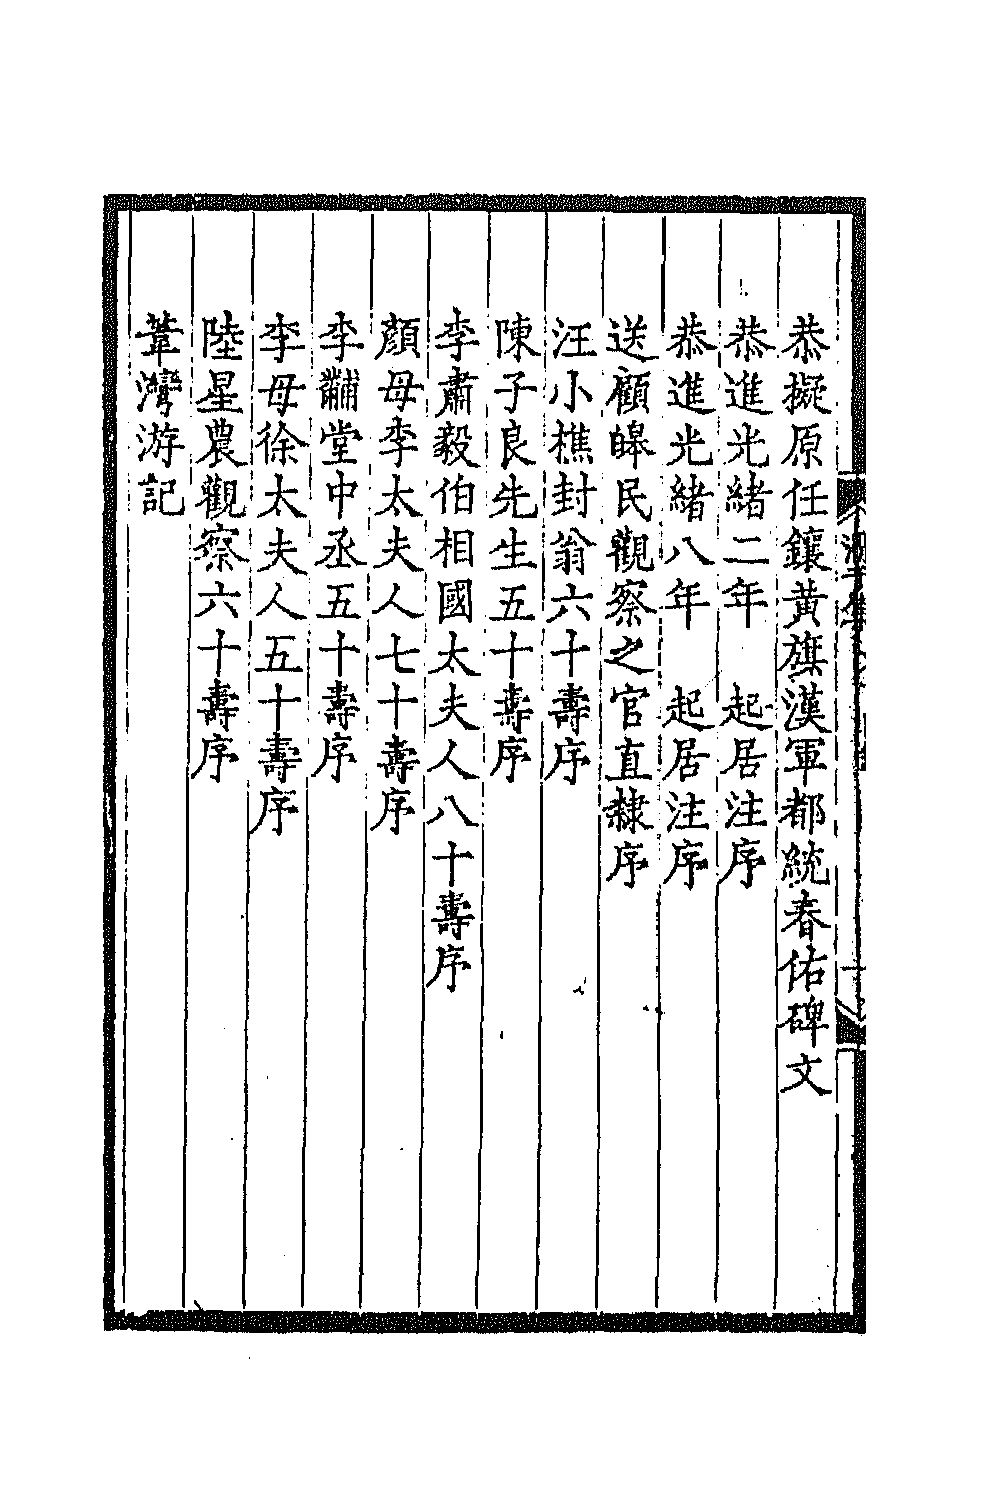 恭擬原任鑲黃旗漢軍都統春佑碑文
恭進光緒二年　起居注序
恭進光緒八年　起居注序
送顧皥民觀察之官直隸序
汪小樵封翁六十壽序
陳子良先生五十壽序
李肅毅伯相國太夫人八十壽序
顏母李太夫人七十壽序
李黼堂中丞五十壽序
李母徐太夫人五十壽序
陸星農觀察六十壽序
葦灣游記